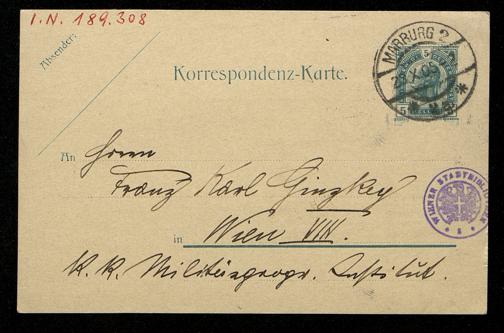 I.N. 189.308
Absender:
MARBURG 2
5
Korrespondenz-Karte.
5
An Herrn
Franz Karl Ginzkey
WIENER STADTBIBLIOTHEK
in Wien VIII.
k. k. Militärgeogr. Institut.